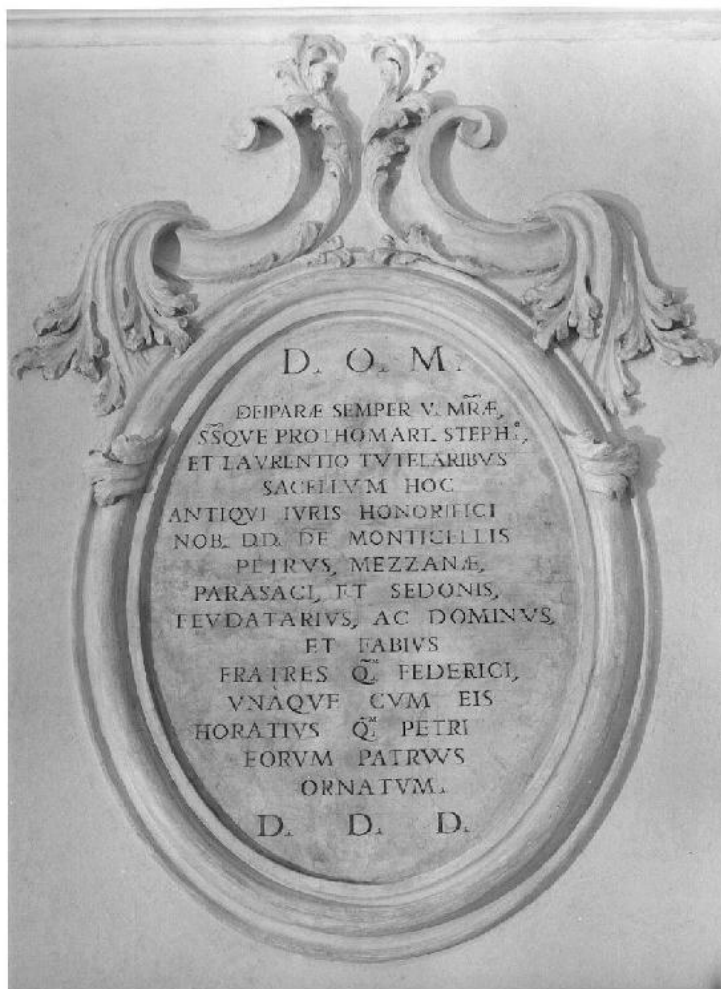 D. O. M.
DEIPARÆ SEMPER V. MR̃Æ,
SS̃QVE PROTHOMART. STEPHº.,
ET LAVRENTIO TVTELARIBVS
SACELLVM HOC
ANTIQVI IVRIS HONORIFICI
NOB. D.D. DE MONTICELLIS
PETRVS, MEZZANÆ,
PARASACI, ET SEDONIS,
FEVDATARIVS, AC DOMINVS,
ET FABIVS
FRATRES Q.ᴹ FEDERICI,
VNÀQVE CVM EIS
HORATIVS Q.ᴹ PETRI
EORVM PATRVVS
ORNATVM.
D. D. D.